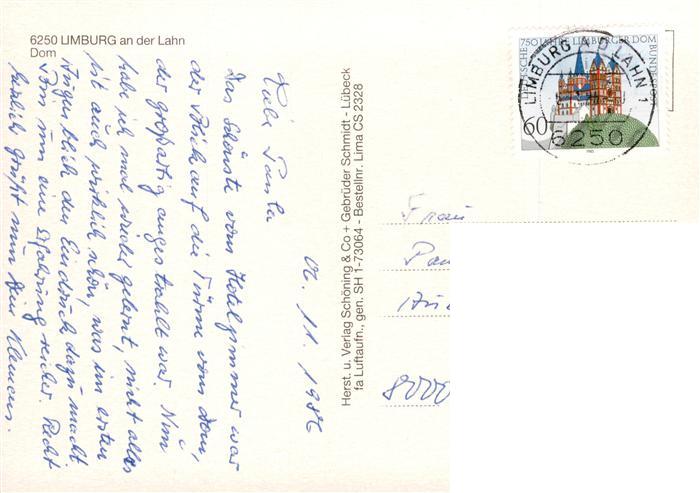 6250 LIMBURG an der Lahn
Dom
06.11.1986
Liebe Paula
Das Schönste vom Hotelzimmer war
der Blick auf die Türme vom Dom,
der großartig angestrahlt war. Nun
habe ich mal wieder gelernt, nicht alles
ist auch wirklich schön, was im ersten
Augenblick den Eindruck dazu macht
Bin um eine Erfahrung reicher. Recht
herzlich grüßt nun Dein Klemens.
Herst. u. Verlag Schöning & Co + Gebrüder Schmidt - Lübeck
fa Luftaufn., gen. SH 1-73064 - Bestellnr. Lima CS 2328
750 JAHRE LIMBURGER DOM
60
LIMBURG A D LAHN 1
6250
Frau
8000